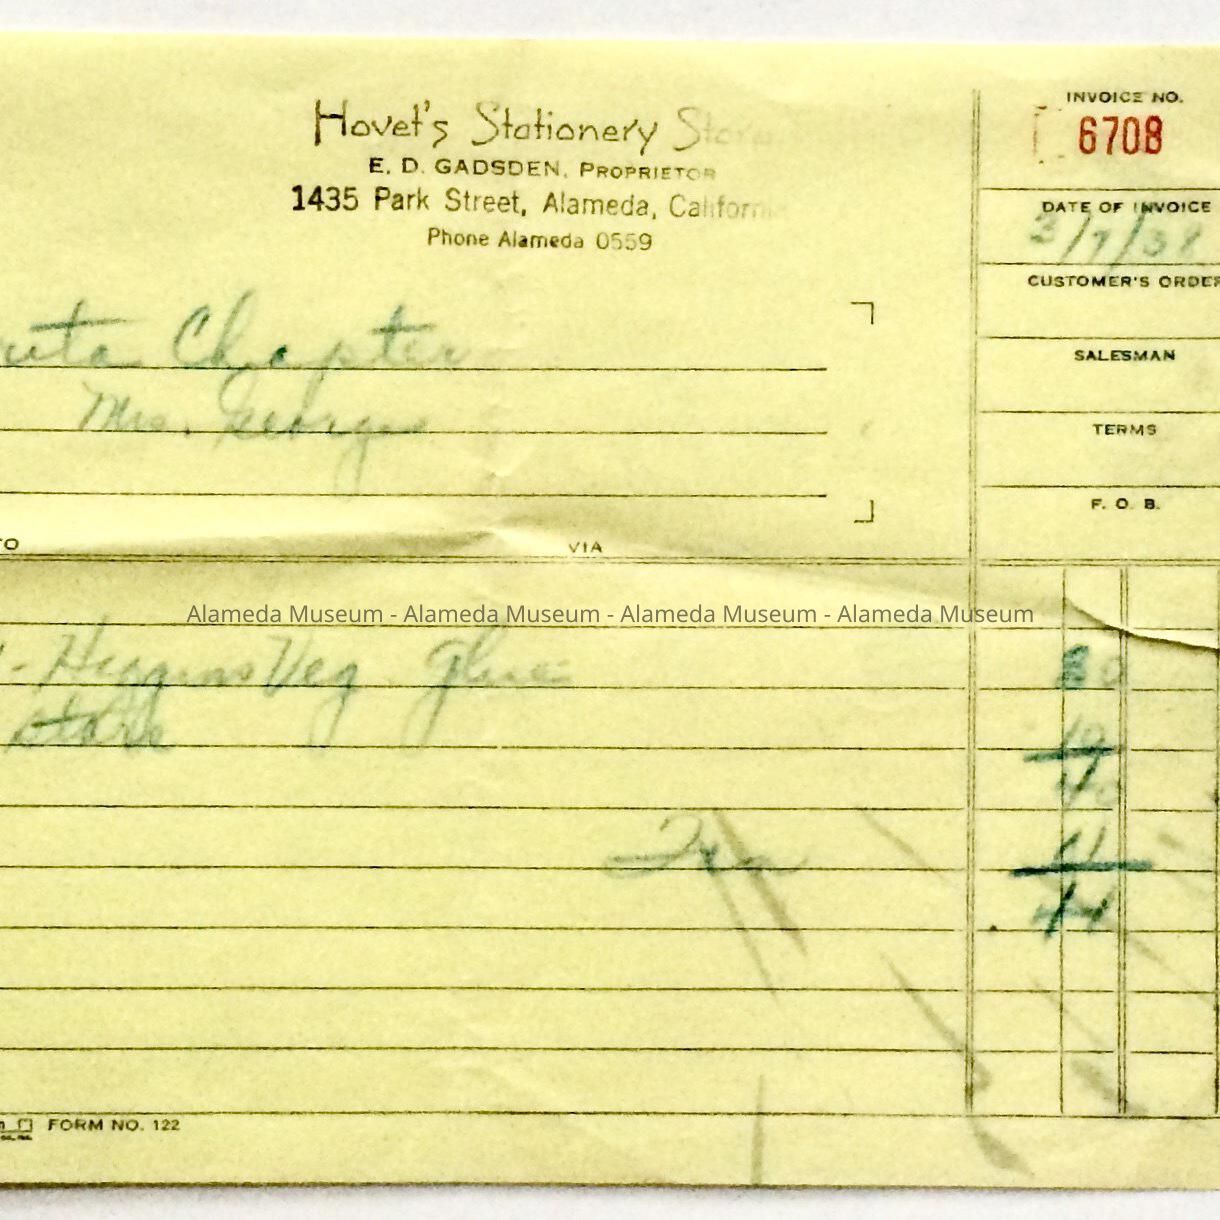 Hovet's Stationery Store
E. D. GADSDEN, PROPRIETOR
1435 Park Street, Alameda, California
Phone Alameda 0559
INVOICE NO.
6708
DATE OF INVOICE
3/7/38
CUSTOMER'S ORDER
SALESMAN
TERMS
F. O. B.
Chapter
Mrs. George
TO
VIA
Alameda Museum - Alameda Museum - Alameda Museum - Alameda Museum
- Higgins Veg Glue
10
40
Tax
44
FORM NO. 122